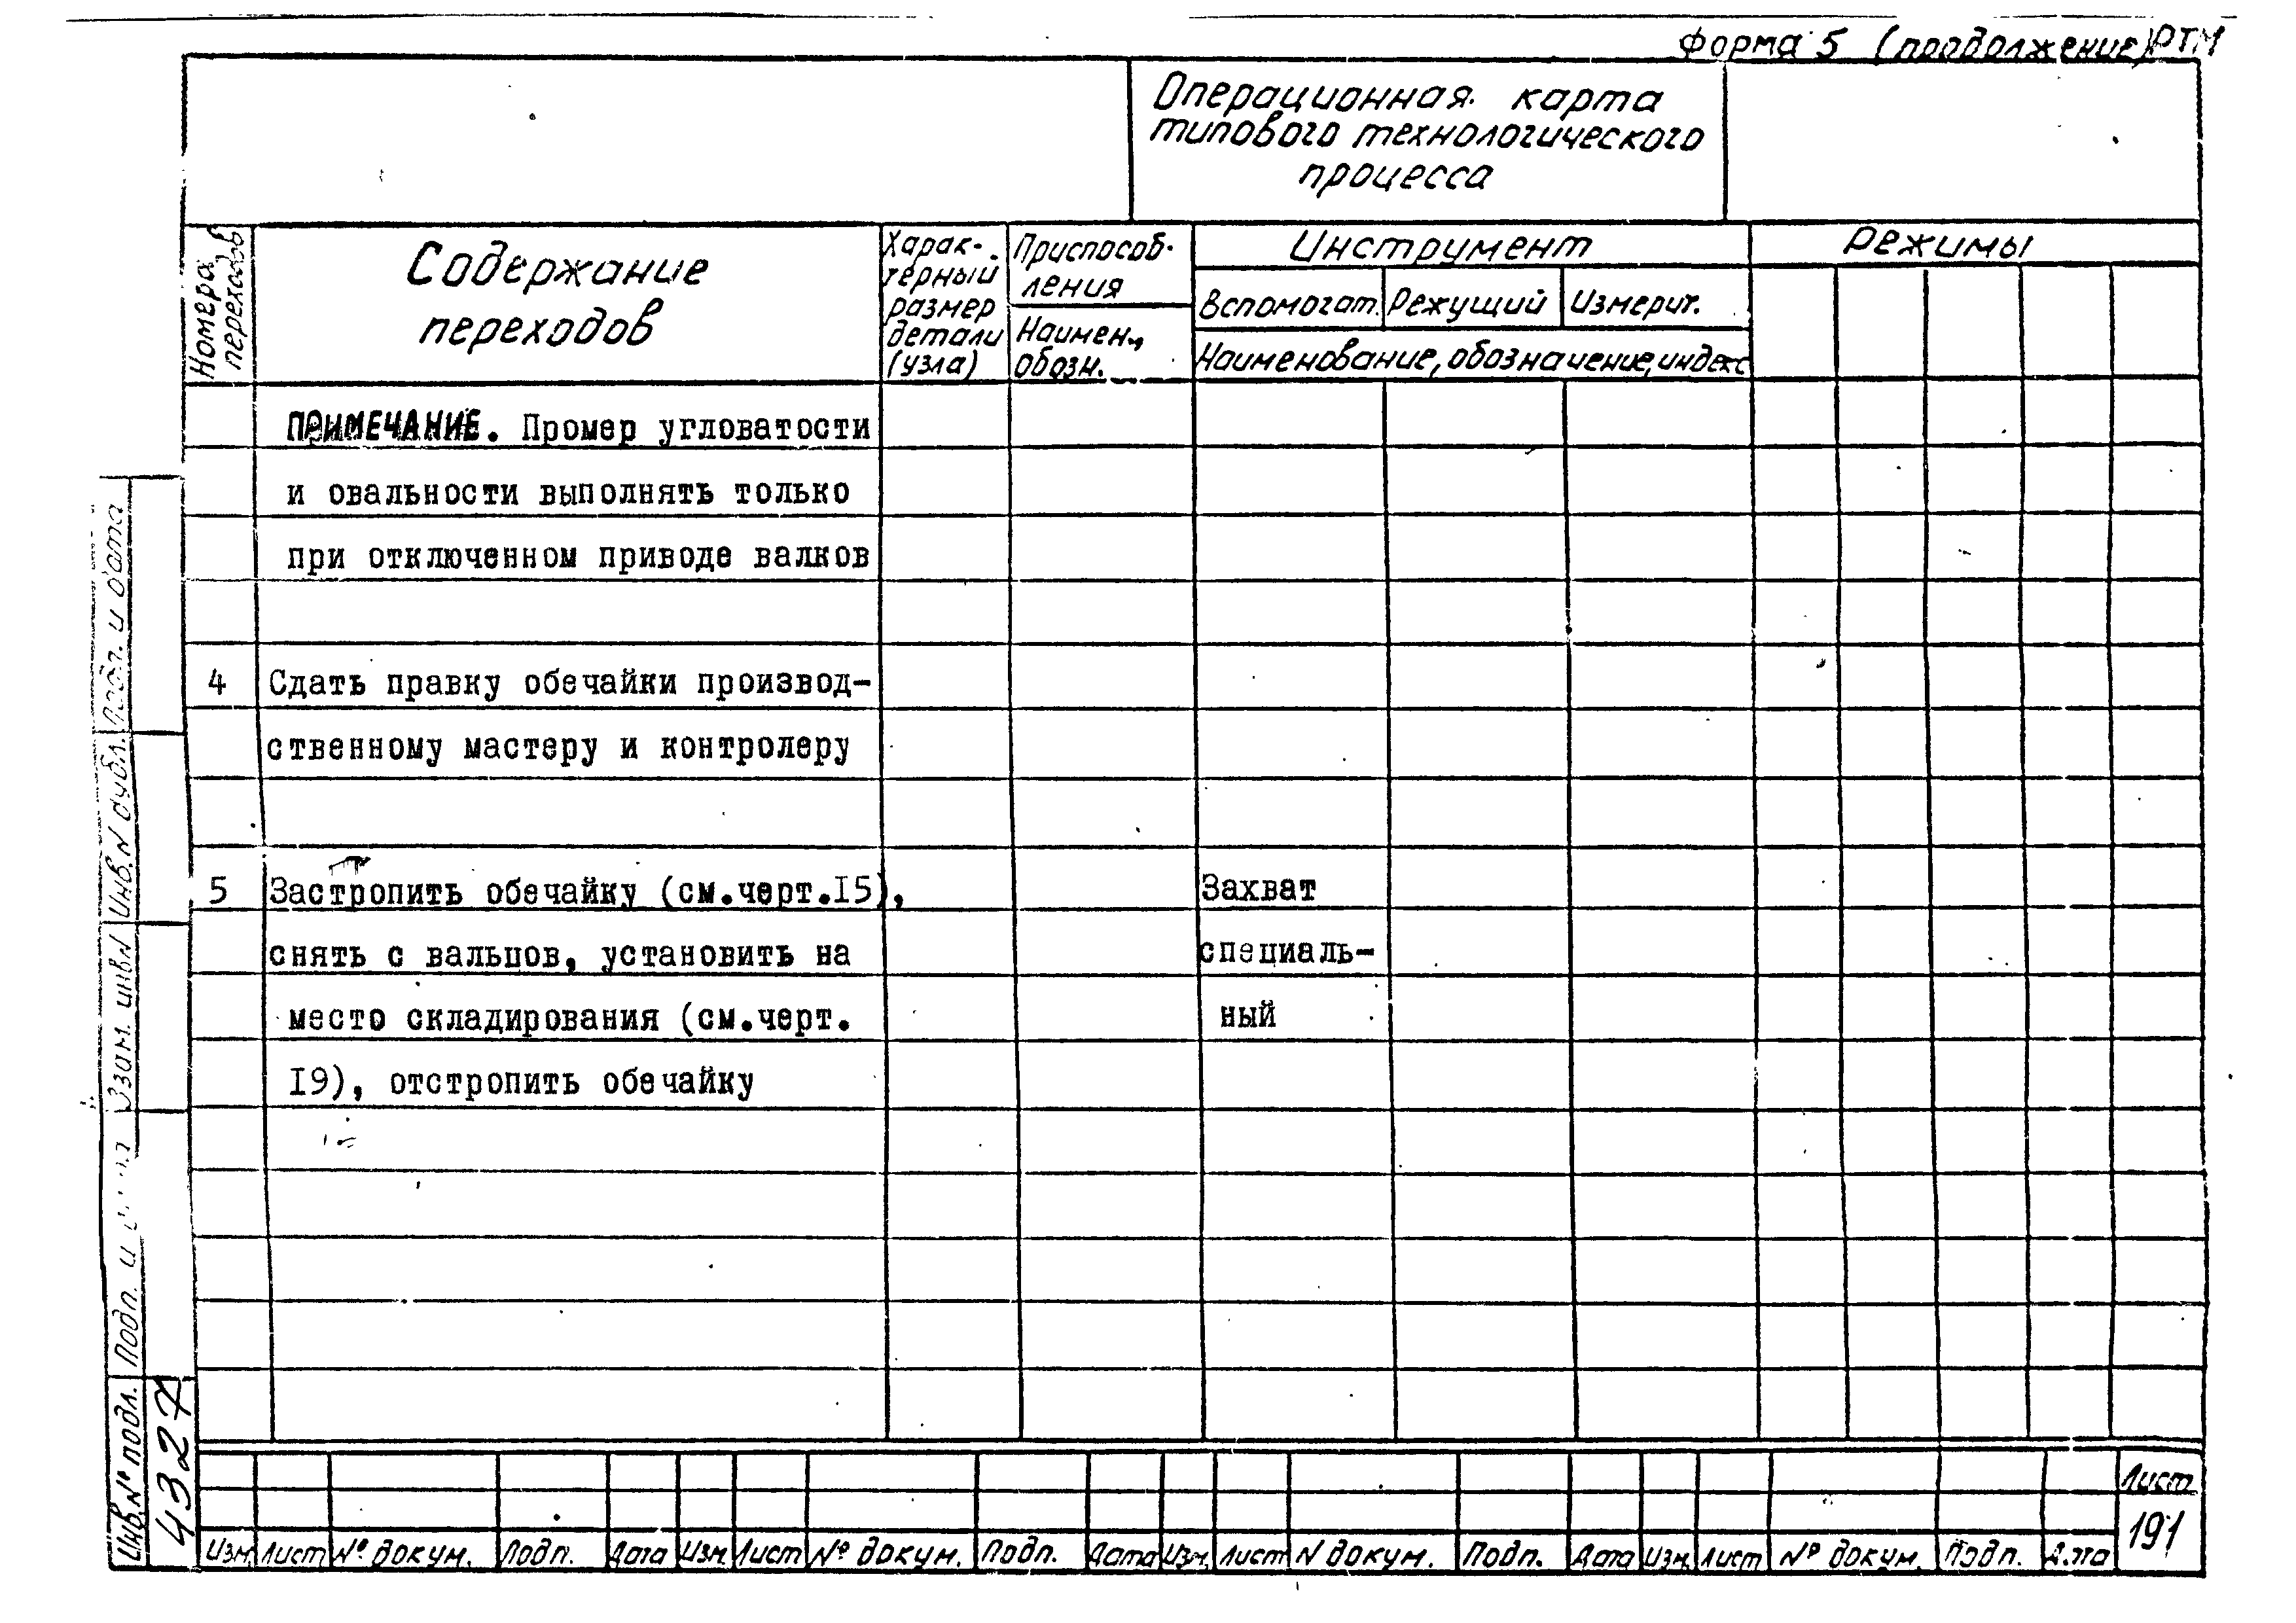 Форма 5 (продолжение) РТМ
Операционная карта
типового технологического
процесса
Номера
переходов
Содержание
переходов
Харак-
терный
размер
детали
(узла)
Приспособ-
ления
Наимен.,
обозн.
Инструмент
Вспомогат. Режущий Измерит.
Наименование, обозначение, индекс
Режимы
ПРИМЕЧАНИЕ. Промер угловатости
и овальности выполнять только
при отключенном приводе валков
4 Сдать правку обечайки производ-
ственному мастеру и контролеру
5 Застропить обечайку (см.черт.I5), Захват
снять с вальцов, установить на специаль-
место складирования (см.черт. ный
I9), отстропить обечайку
Подп. и дата
Инв.N дубл.
Взам. инв.N
Подп. и
Инв.№ подл.
4327
Изм. Лист № докум. Подп. Дата Изм. Лист № докум. Подп. Дата Изм. Лист N докум. Подп. Дата Изм. Лист № докум. Подп. Дата
Лист
191